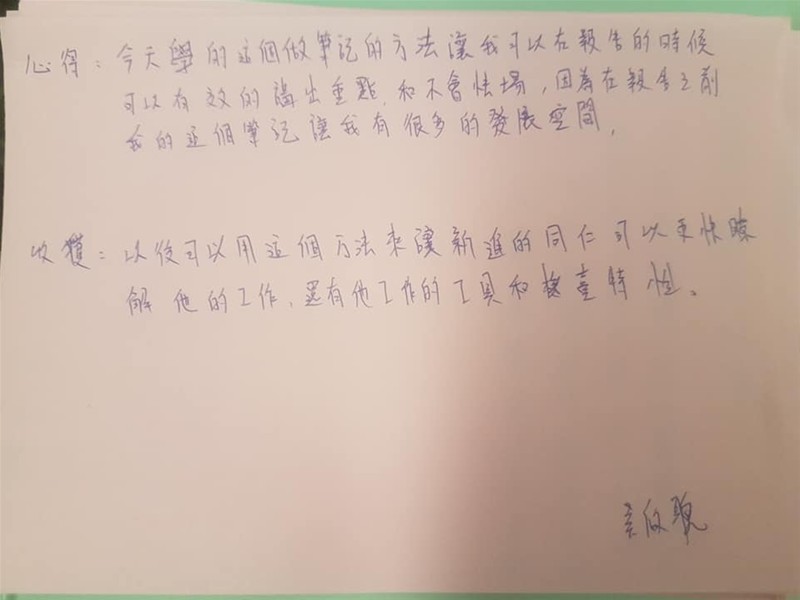 心得：今天學的這個做筆記的方法讓我可以在報告的時候
可以有效的講出重點，和不會怯場，因為在報告之前
我的這個筆記讓我有很多的發展空間，
收獲：以後可以用這個方法來讓新進的同仁可以更快瞭
解他的工作，還有他工作的工具和機臺特性。